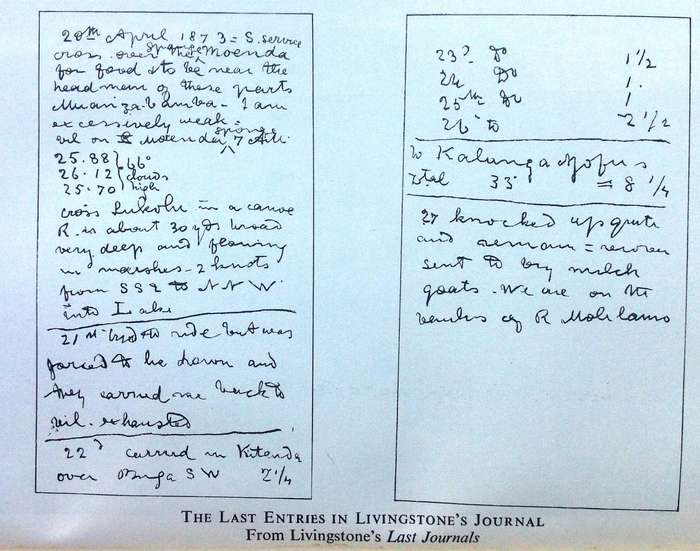 20th April 1873 = S. service
cross over the sponge Moenda
for food & to be near the
headman of these parts
Muanza-bamba - I am
excessively weak =
vil on Moenda sponge 7 AM.
25.88 } 66°
26.12 } clouds
25.70 } high
cross Lukolu in a canoe
R. is about 30 yds broad
very deep and flowing
in marshes - 2 knots
from SSE to NNW
into Lake
21st tried to ride but was
forced to lie down and
they carried me back to
vil. exhausted
22d carried in Kitanda
over Buga SW 2 1/4
23d do 1 1/2
24 Do 1.
25th Do 1
26 to 2 1/2
to Kalunganjofu's
total 33 = 8 1/4
27 knocked up quite
and remain = recover
sent to buy milch
goats. We are on the
banks of R Molilamo
THE LAST ENTRIES IN LIVINGSTONE'S JOURNAL
From Livingstone's Last Journals